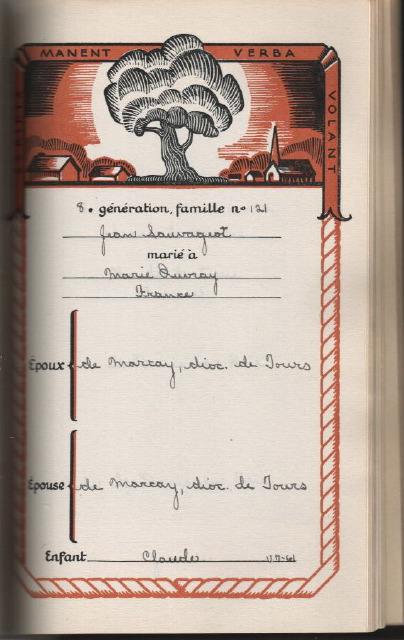 MANENT VERBA VOLANT
8e génération, famille nº 121
Jean Sauvageot
marié à
Marie Duvray
France
Époux de Marcay, dioc. de Tours
Épouse de Marcay, dioc. de Tours
Enfant Claude